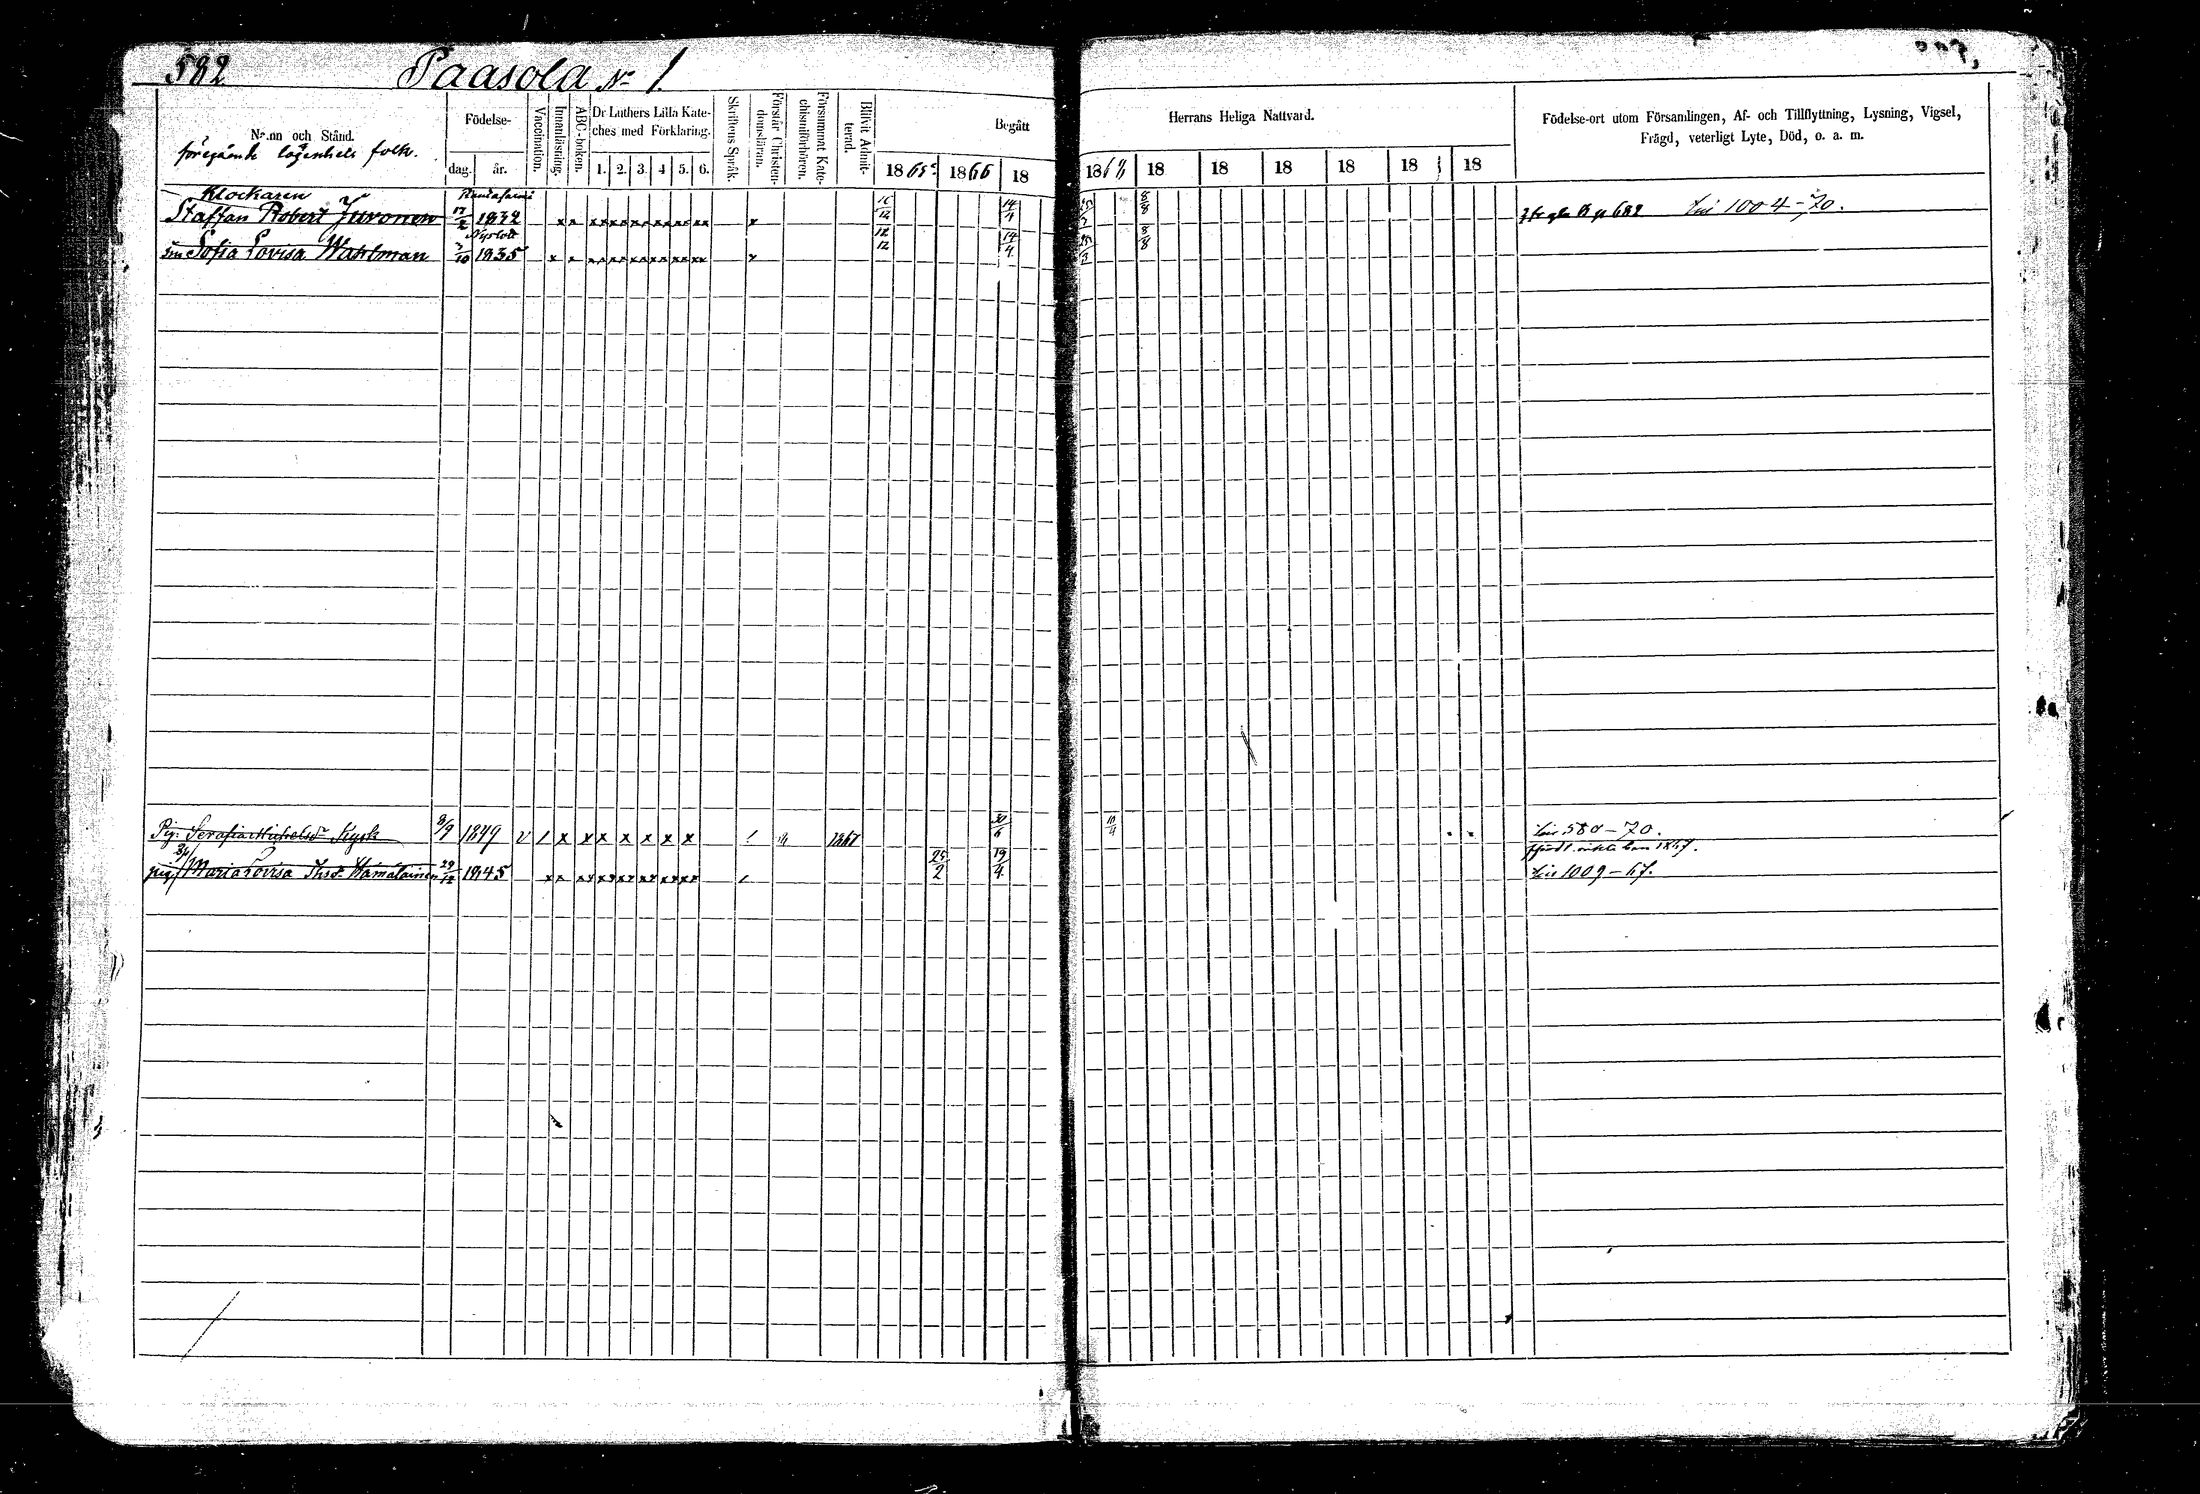 582 Paasola No 1.
Namn och Stånd.
föregående lägenhets folk.
Födelse-
dag. år.
Vaccination.
Innanläsning.
ABC-boken.
Dr Luthers Lilla Kate-
ches med Förklaring.
1. 2. 3. 4 5. 6.
Skriftens Språk.
Förstår Christen-
domsläran.
Försummat Kate-
chismiförhören.
Blifvit Admit-
terad.
Begått
1865 1866 18
Herrans Heliga Nattvard.
18 18 18 18 18 18 18
Födelse-ort utom Församlingen, Af- och Tillflyttning, Lysning, Vigsel,
Frägd, veterligt Lyte, Död, o. a. m.
Klockaren Rantasalmi
Staffan Robert Juvonen 17/2 1832 x x x x x x x x x x x x x x x 16/12 14/4 25/3 8/8 1004-70.
Nyslott
Sofia Lovisa Wahlman 3/10 1835 x x x x x x x x x x x x x x x 12/12 14/4 25/3 8/8
Pig. Serafia Michelsdr Kysk 8/9 1849 v 1 x x x x x x x 1867 30/6 10/4 580-70.
pig Maria Lovisa Thsdr Hämäläinen 29/12 1845 x x x x x x x x x x x x x x 25/2 19/4 1009-67.